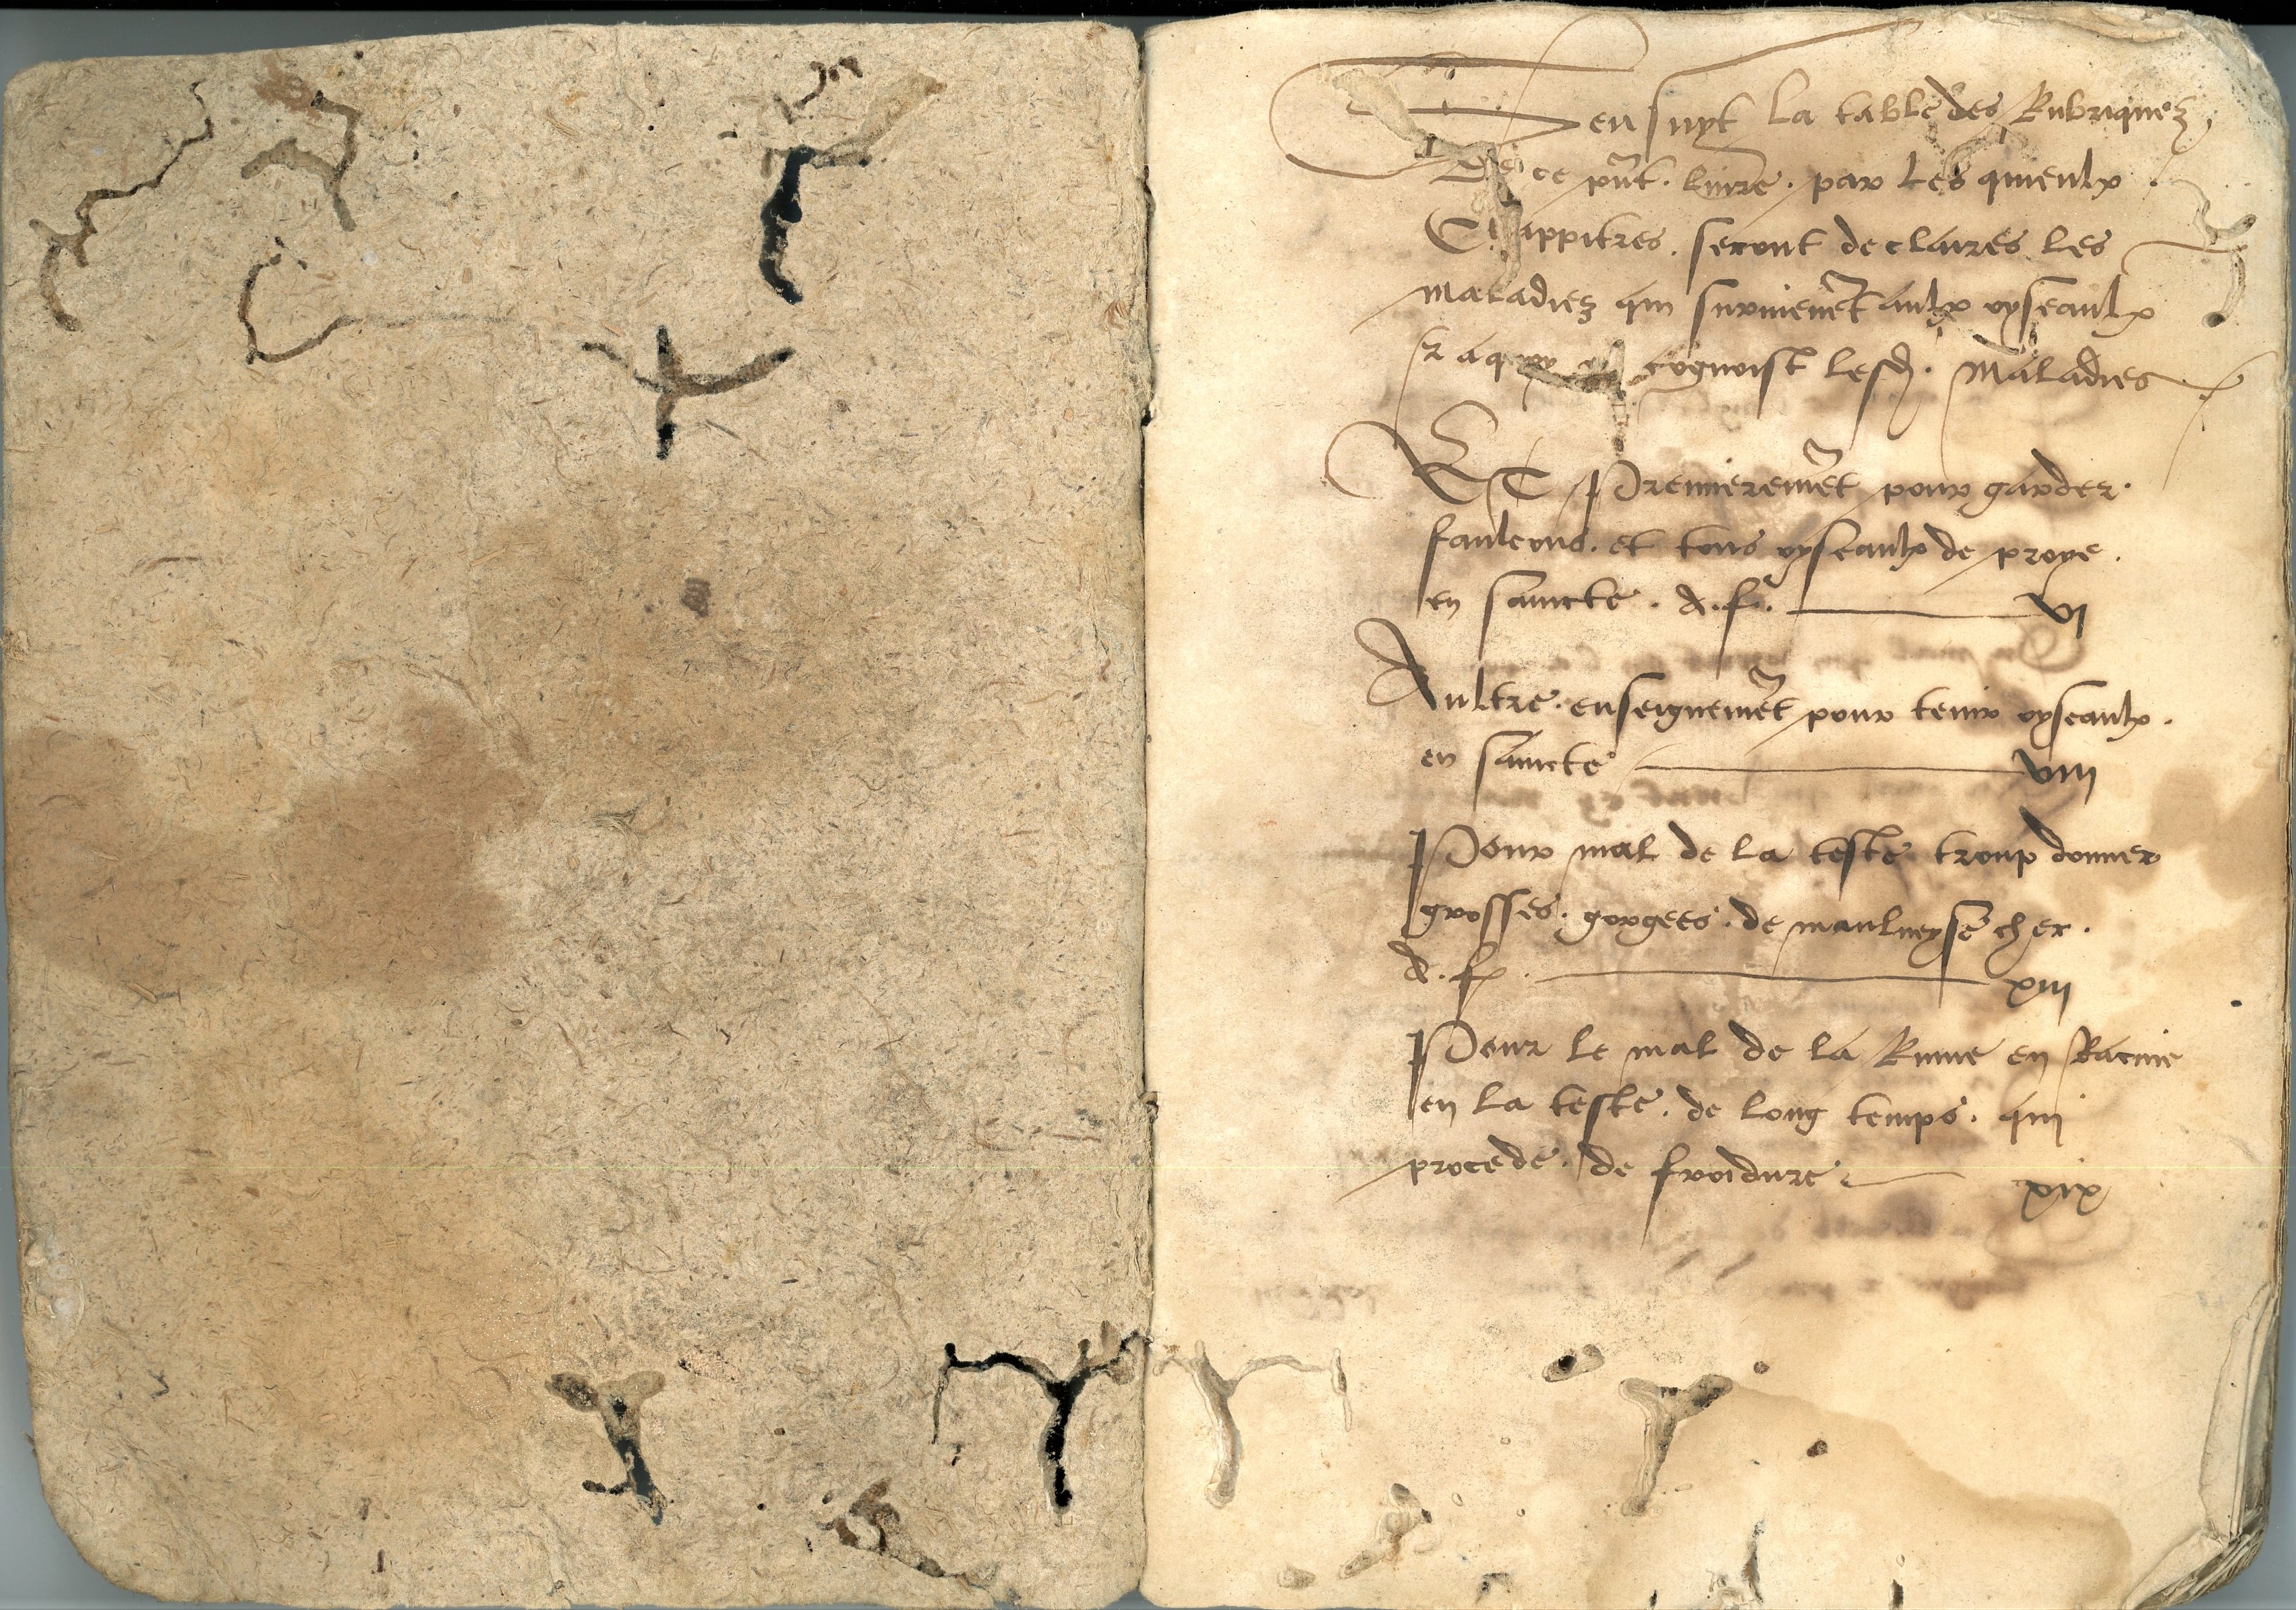 Sensuyt la table des Rubriquez
De ce pn̄t. liure. par les quieulx.
Chappitres. seront declaires les
maladiez qui suruienēt aulx oyseaulx
⁊ a quoy cognoist lesd. maladies
ET Premieremēt pour garder.
faulcons. et tous oyseaulx de proye.
en saincte. A. fo. vi
Aultre. enseignemēt pour tenir oyseaulx.
en saincte viii
Pour mal de la teste troup donner
grosses. gorgees. de maulueyse cher.
A. fo. xiii
Pour le mal de la Rume en Racine
en la teste. de long temps. qui
procede. de froidure xix